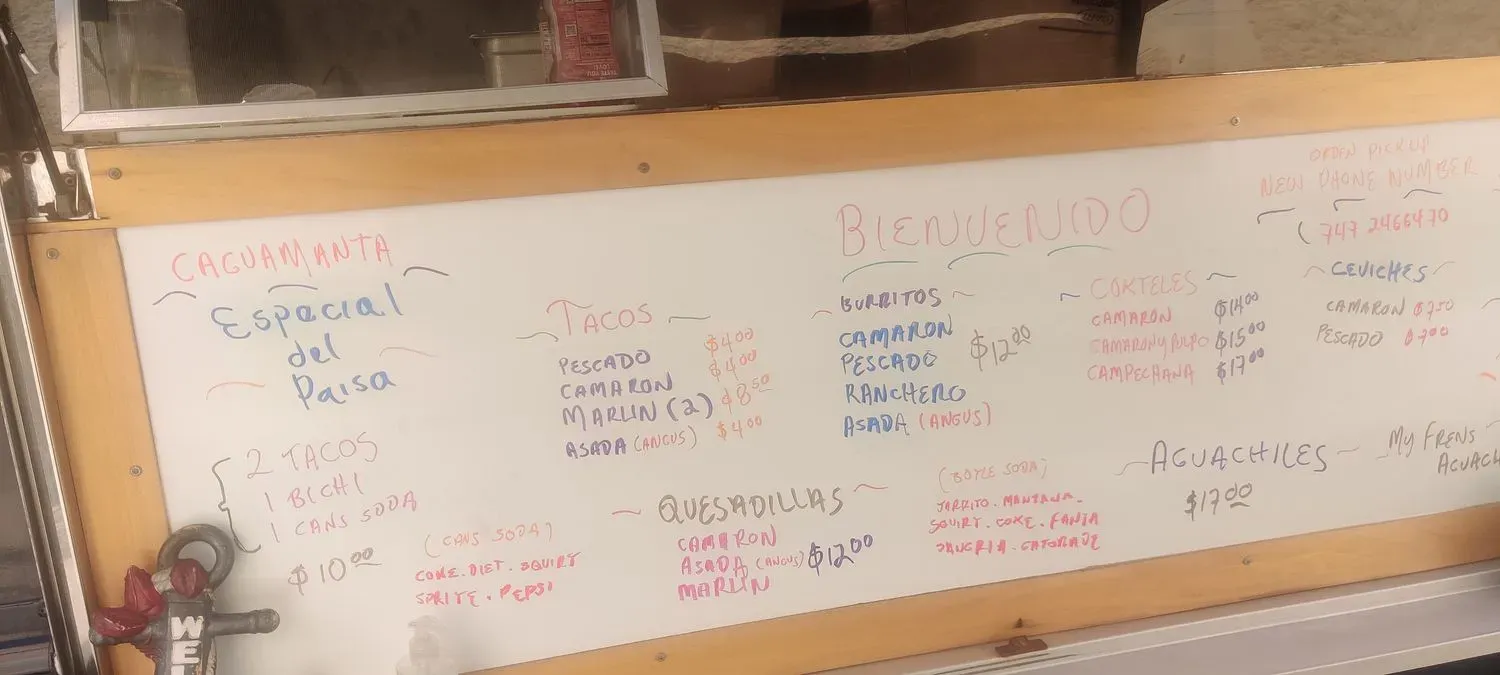 CAGUAMANTA
Especial
del
Paisa
2 TACOS
1 BICHI
1 CANS SODA
$10.00
(CANS SODA)
COKE. DIET. SQUIRT
SPRITE. PEPSI
TACOS
PESCADO $4.00
CAMARON $4.00
MARLIN (2) $8.50
ASADA (ANGUS) $4.00
QUESADILLAS
CAMARON
ASADA (ANGUS) $12.00
MARLIN
BIENVENIDO
BURRITOS
CAMARON
PESCADO $12.00
RANCHERO
ASADA (ANGUS)
(BOTLE SODA)
JARRITO. MANZANA.
SQUIRT. COKE. FANTA
SANGRIA. GATORADE
COKTELES
CAMARON $14.00
CAMARON Y PULPO $15.00
CAMPECHANA $17.00
AGUACHILES
$17.00
ORDEN PICKUP
NEW PHONE NUMBER
(747 2466470
CEVICHES
CAMARON $7.50
PESCADO $7.00
MY FRENS
AGUACH
WEL